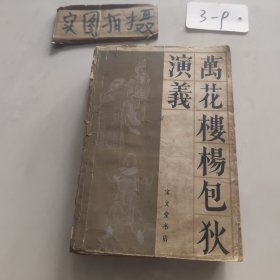 实图拍摄
3-P.
萬花樓楊包狄
演義
宝文堂书店